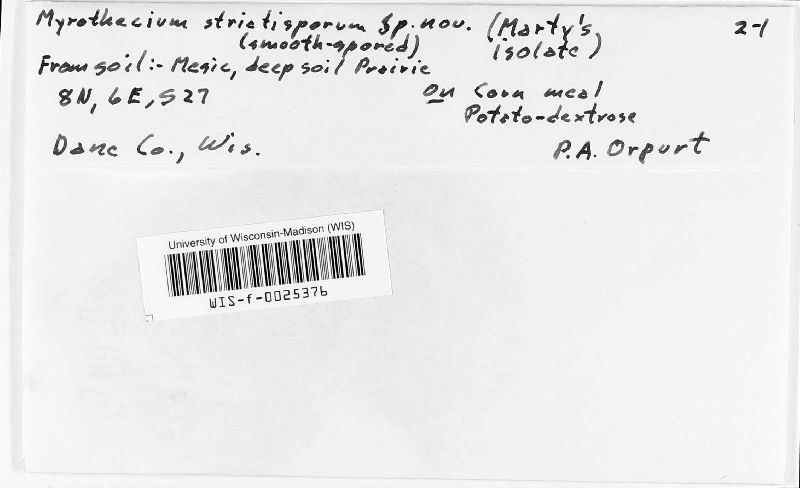 Myrothecium strictisporum Sp. nov. (Marty's isolate) 2-1
(smooth-spored)
From soil:- Mesic, deep soil Prairie
8N, 6E, S27 On Corn meal
Potato-dextrose
Dane Co., Wis. P.A. Orpurt
University of Wisconsin-Madison (WIS)
WIS-f-0025376